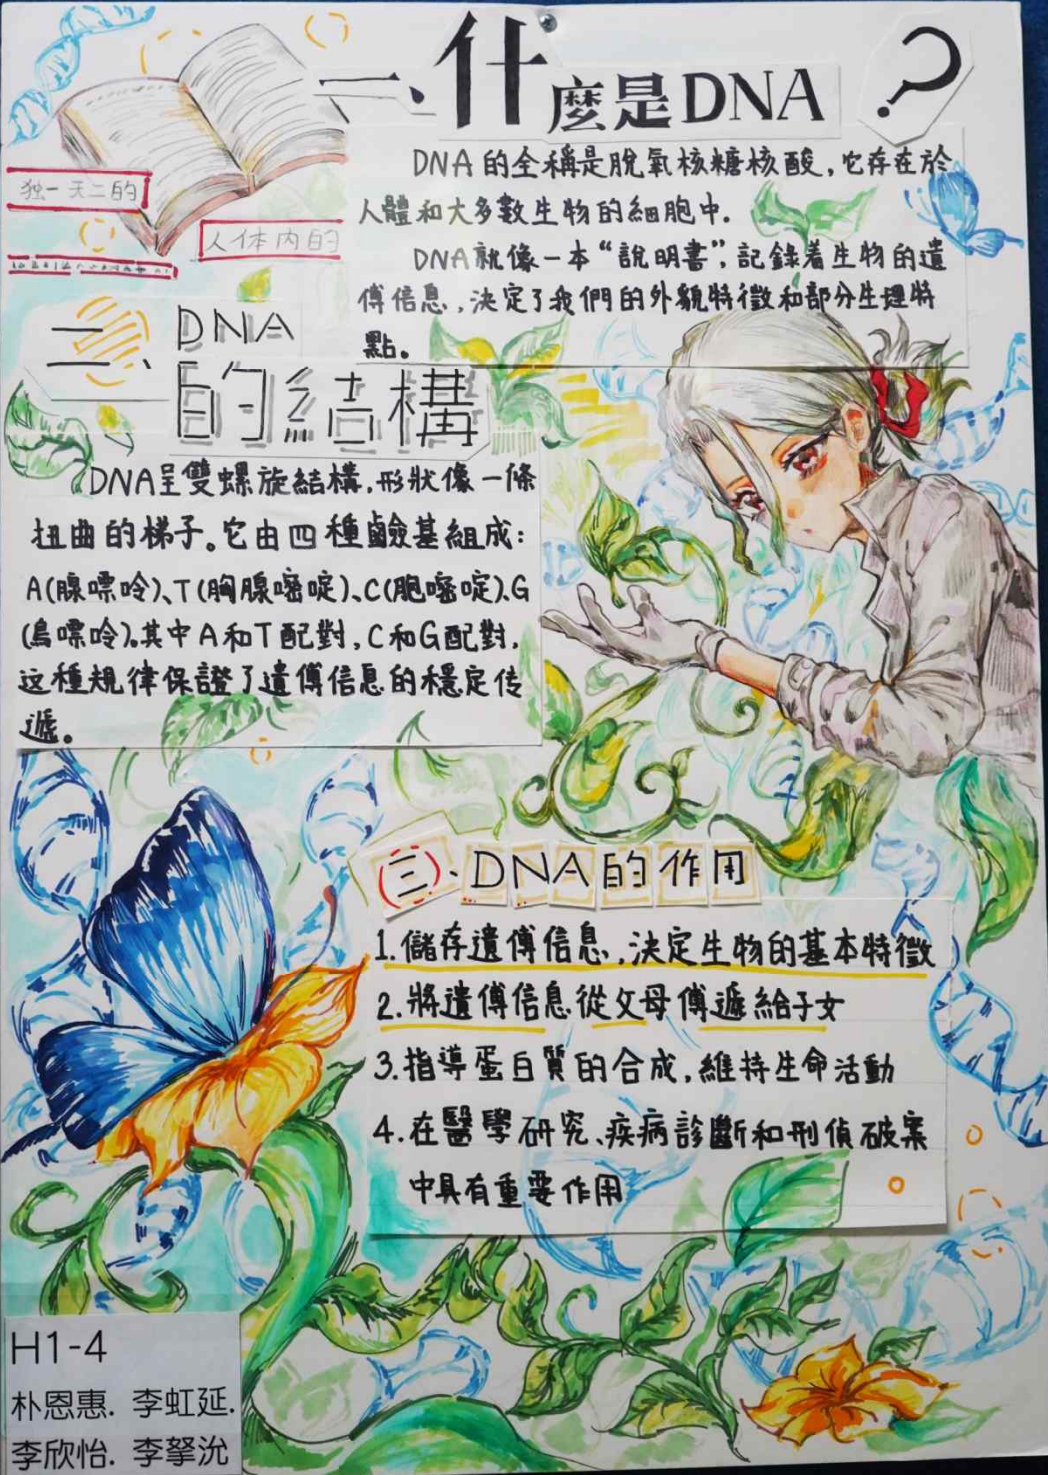 一、什麼是DNA？
DNA的全稱是脫氧核糖核酸,它存在於
人體和大多數生物的細胞中.
DNA就像一本“說明書”,記錄着生物的遺
傳信息,決定了我們的外貌特徵和部分生理特
點。
独一无二的
人体内的
二、DNA
的結構
DNA呈雙螺旋結構,形狀像一條
扭曲的梯子。它由四種鹼基組成:
A(腺嘌呤)、T(胸腺嘧啶)、C(胞嘧啶)、G
(鳥嘌呤)。其中A和T配對,C和G配對,
这種規律保證了遺傳信息的穩定传
遞。
(三)、DNA的作用
1.儲存遺傳信息,決定生物的基本特徵
2.將遺傳信息從父母傳遞給子女
3.指導蛋白質的合成,維持生命活動
4.在醫學研究、疾病診斷和刑偵破案
中具有重要作用
H1-4
朴恩惠. 李虹延.
李欣怡. 李拏沇